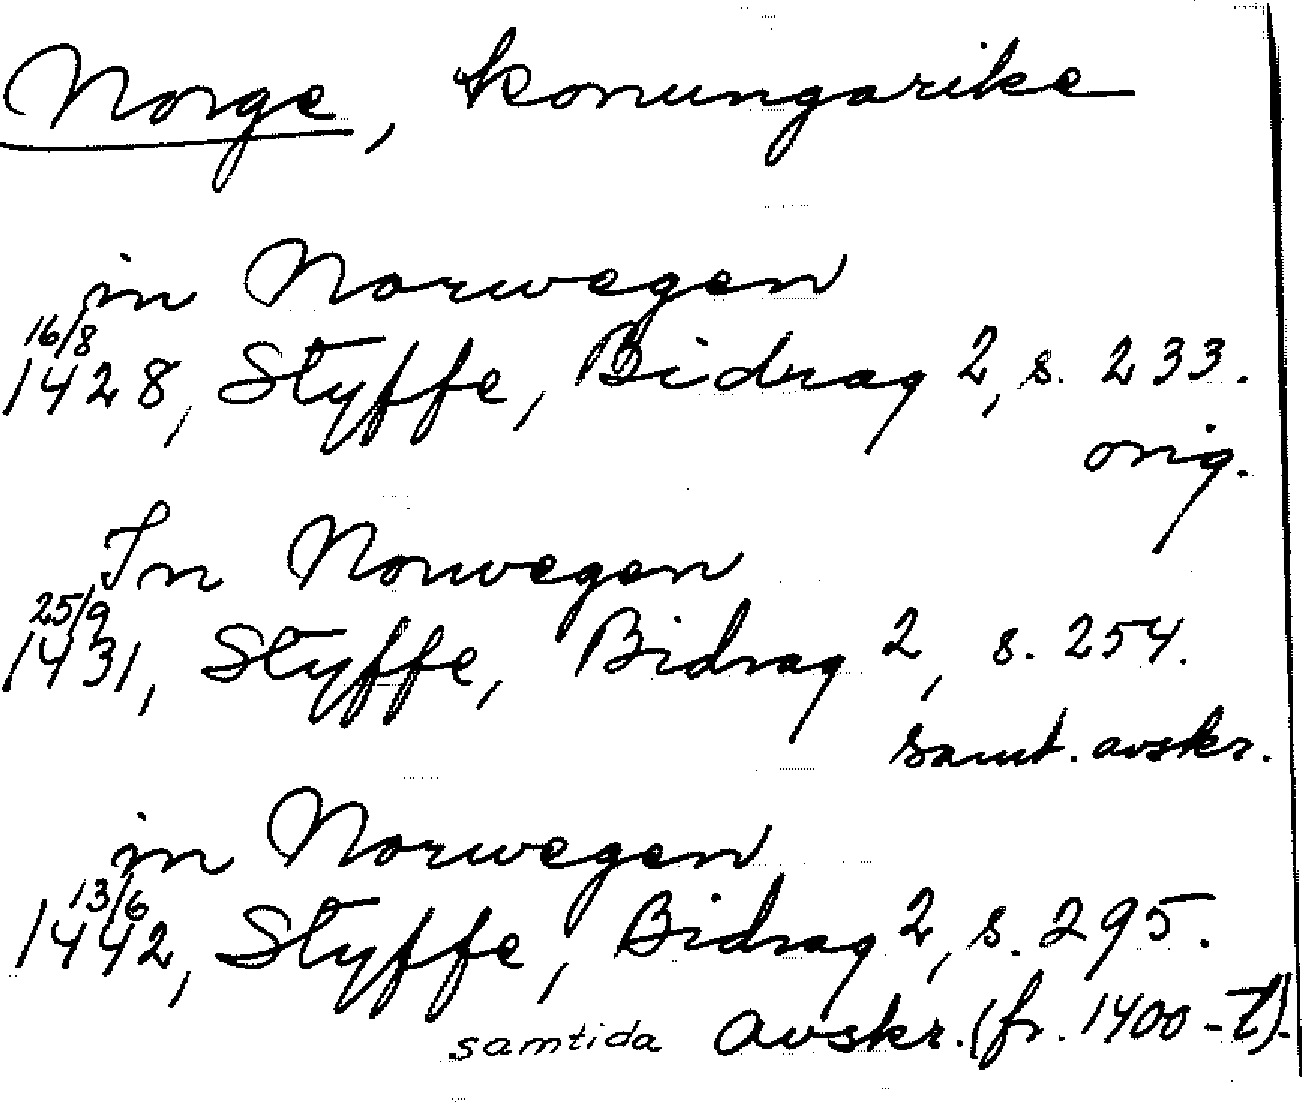 Norge, konungarike
in Norwegen
16/8
1428, Styffe, Bidrag 2, s. 233.
orig.
In Norwegen
25/9
1431, Styffe, Bidrag 2, s. 254.
samt. avskr.
in Norwegen
13/6
1442, Styffe, Bidrag 2, s. 295.
samtida avskr. (fr. 1400-t).